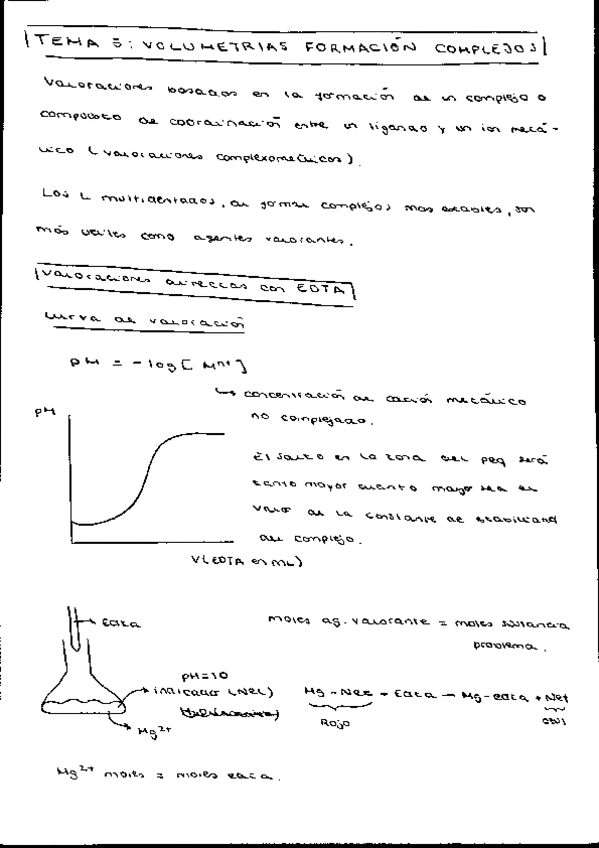 TEMA 5: VOLUMETRIAS FORMACIÓN COMPLEJOS
Valoraciones basadas en la formación de un complejo o
compuesto de coordinación entre un ligando y un ion metá-
lico (valoraciones complexométricas).
Los L multidentados, al formar complejos mas estables, son
más útiles como agentes valorantes.
Valoraciones directas con EDTA
curva de valoración
pM = -log [Mn+]
↳ concentración de catión metálico
no complejado.
pM
El salto en la zona del peq será
tanto mayor cuanto mayor sea el
valor de la constante de estabilidad
del complejo.
V(EDTA en mL)
Edta
moles ag. valorante = moles sustancia
problema.
pH=10
indicador (Net)
Mg-Net + Edta → Mg-edta + Net
Rojo
azul
Mg2+
Mg2+ moles = moles edta.